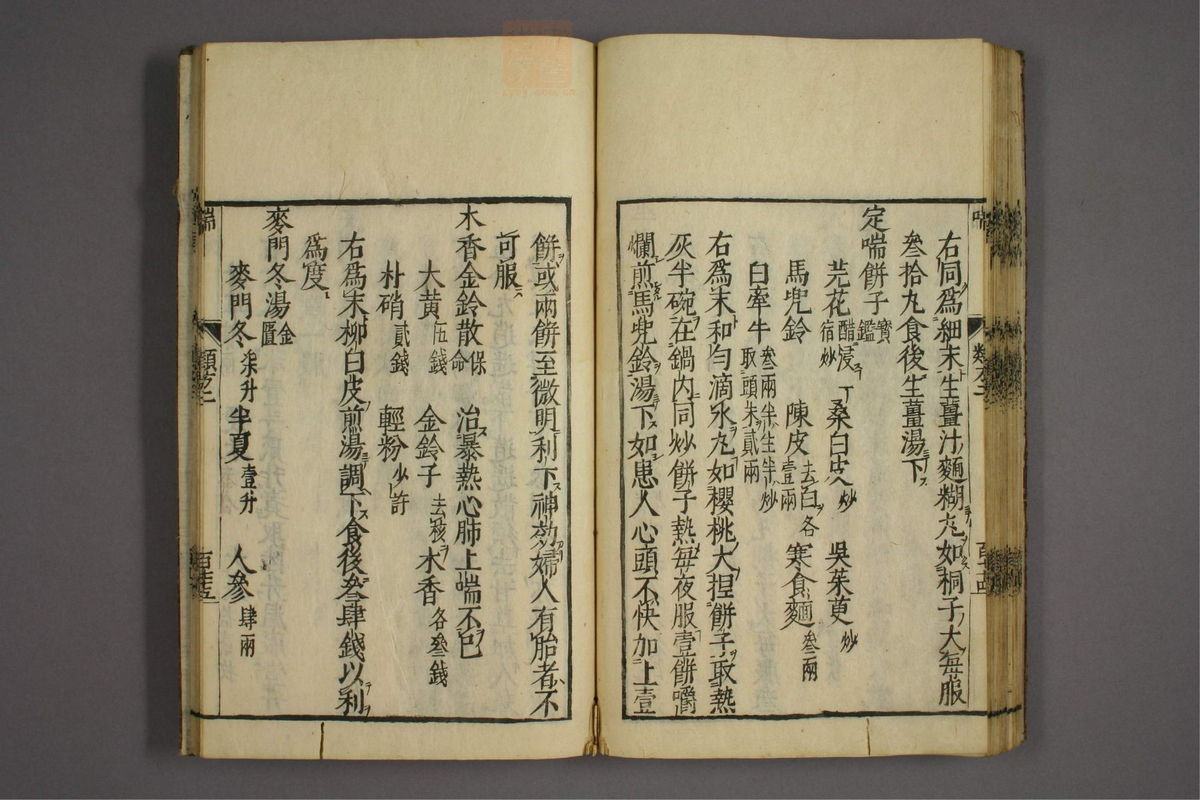 右同爲細末生薑汁麵糊丸如桐子大每服
叁拾丸食後生薑湯下
定喘餅子寶鑑
芫花醋浸宿炒 桑白皮炒 吳茱萸炒
馬兜鈴 陳皮去白各壹兩 寒食麵叁兩
白牽牛叁兩半生半炒取頭末貳兩
右爲末和勻滴水丸如櫻桃大捏餅子取熱
灰半碗在鍋內同炒餅子熱每夜服壹餅嚼
爛煎馬兜鈴湯下如患人心頭不快加上壹
餅或兩餅至微明利下神効婦人有胎者不
可服
木香金鈴散保命 治暴熱心肺上喘不已
大黃伍錢 金鈴子去核 木香各叁錢
朴硝貳錢 輕粉少許
右爲末柳白皮煎湯調下食後叁肆錢以利
爲度
麥門冬湯金匱
麥門冬柒升 半夏壹升 人參肆兩
喘 類方二